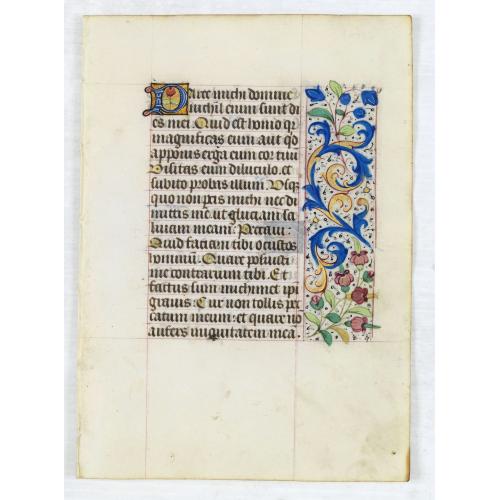 Parce michi domine
nichil enim sunt di
es mei. Quid est homo q̄
magnificas eum aut qd̄
apponis erga eum cor tuū
Visitas eum diluculo. et
subito probas illum Usq̄
quo non p̄cis michi nec di
mittis me. ut glutiam sa
liuam meam : Peccaui :
Quid faciam tibi o custos
hominum. Quare posuisti
me contrarium tibi. Et
factus sum michimet ip̄i
grauis : Cur non tollis pec
catum meum : et quare nō
aufers iniquitatem meā.